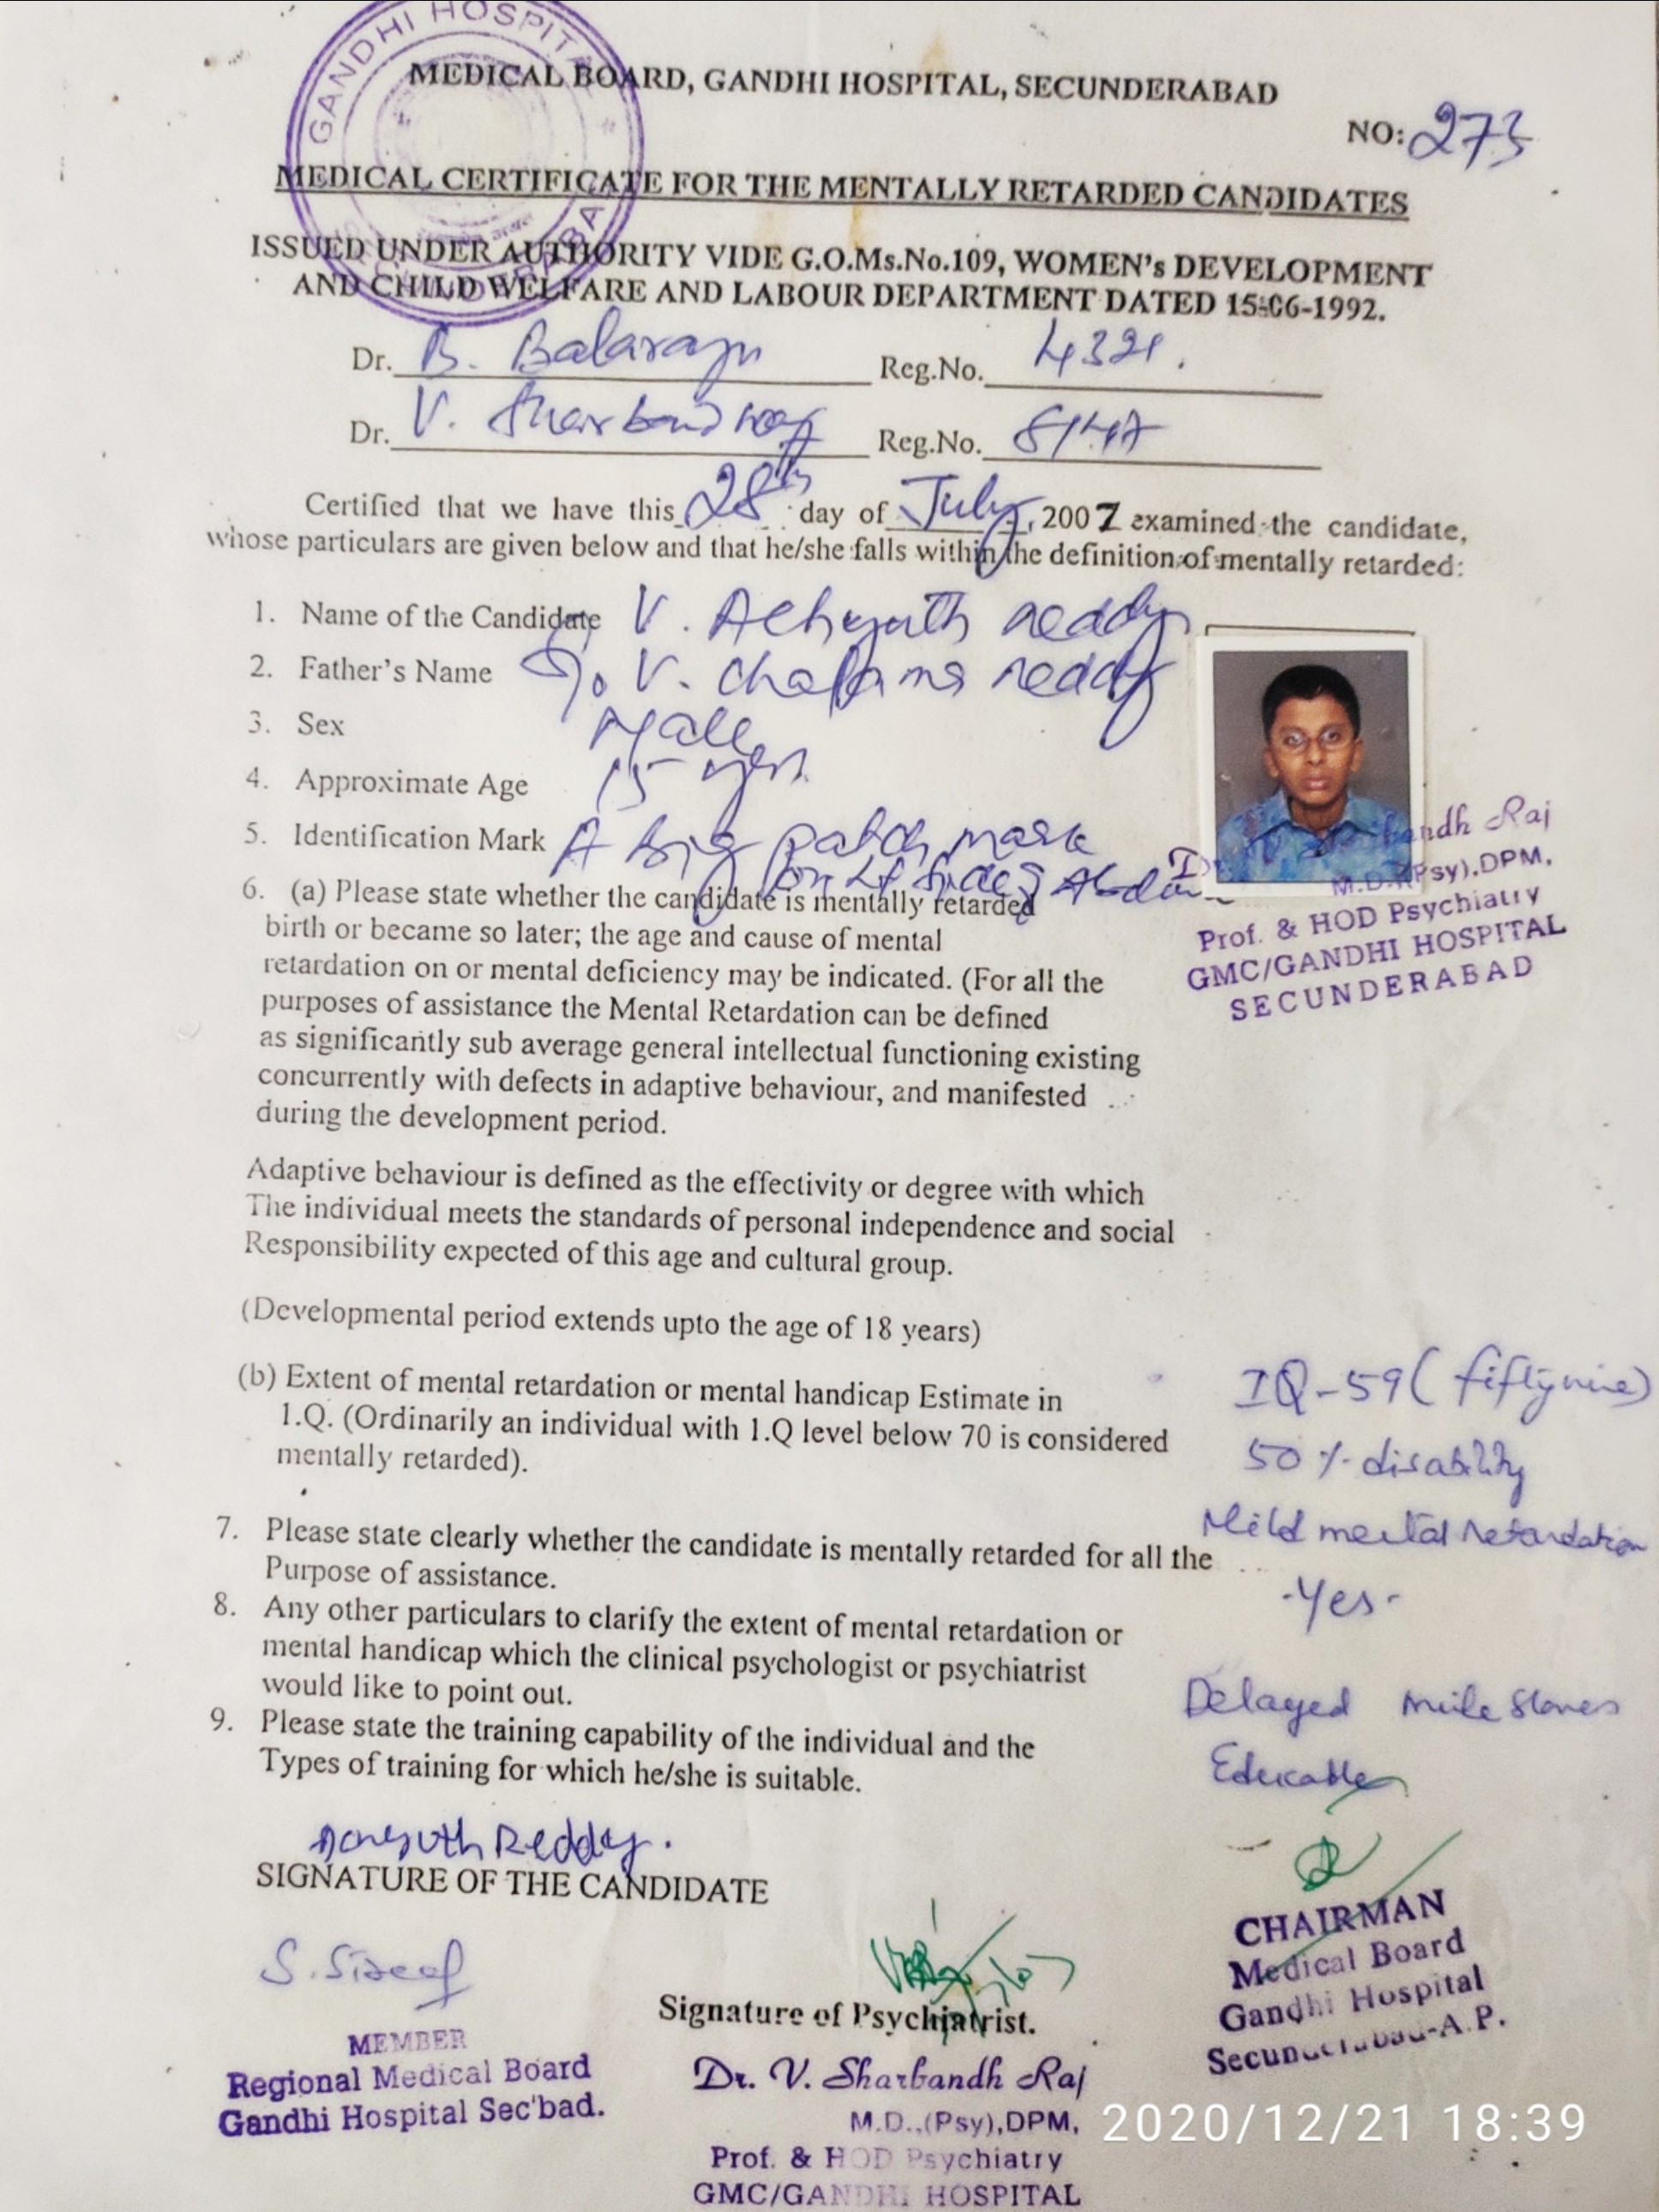 GANDHI HOSPITAL
MEDICAL BOARD, GANDHI HOSPITAL, SECUNDERABAD
NO: 273
MEDICAL CERTIFICATE FOR THE MENTALLY RETARDED CANDIDATES
ISSUED UNDER AUTHORITY VIDE G.O.Ms.No.109, WOMEN's DEVELOPMENT
AND CHILD WELFARE AND LABOUR DEPARTMENT DATED 15-06-1992.
Dr. B. Balaraju Reg.No. 4321.
Dr. V. Sharbandh Raj Reg.No.
Certified that we have this 28th day of July, 2007 examined the candidate,
whose particulars are given below and that he/she falls within the definition of mentally retarded:
1. Name of the Candidate V. Achyuth reddy
2. Father's Name S/o V. reddy
3. Sex Male
4. Approximate Age 15 yers
5. Identification Mark A big patch mark
on Lt side of Abdom
6. (a) Please state whether the candidate is mentally retarded
birth or became so later; the age and cause of mental
retardation on or mental deficiency may be indicated. (For all the
purposes of assistance the Mental Retardation can be defined
as significantly sub average general intellectual functioning existing
concurrently with defects in adaptive behaviour, and manifested
during the development period.
andh Raj
M.D.(Psy),DPM,
Prof. & HOD Psychiatry
GMC/GANDHI HOSPITAL
SECUNDERABAD
Adaptive behaviour is defined as the effectivity or degree with which
The individual meets the standards of personal independence and social
Responsibility expected of this age and cultural group.
(Developmental period extends upto the age of 18 years)
(b) Extent of mental retardation or mental handicap Estimate in
1.Q. (Ordinarily an individual with 1.Q level below 70 is considered
mentally retarded).
IQ-59 (fiftynine)
50% disability
Mild mental Retardation
7. Please state clearly whether the candidate is mentally retarded for all the
Purpose of assistance.
-Yes-
8. Any other particulars to clarify the extent of mental retardation or
mental handicap which the clinical psychologist or psychiatrist
would like to point out.
Delayed milestones
9. Please state the training capability of the individual and the
Types of training for which he/she is suitable.
Educable
Achyuth Reddy.
SIGNATURE OF THE CANDIDATE
MEMBER
Regional Medical Board
Gandhi Hospital Sec'bad.
Signature of Psychiatrist.
Dr. V. Sharbandh Raj
M.D.,(Psy),DPM,
Prof. & HOD Psychiatry
GMC/GANDHI HOSPITAL
CHAIRMAN
Medical Board
Gandhi Hospital
Secunderabad-A.P.
2020/12/21 18:39